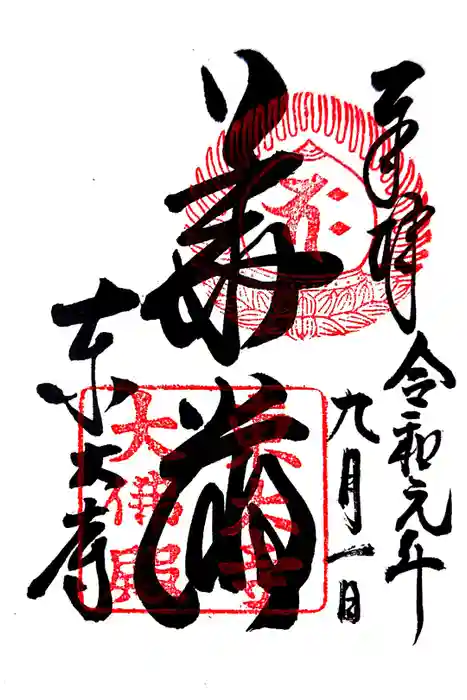 奉拝
令和元年
九月一日
華嚴
東大寺
東大寺
大佛殿